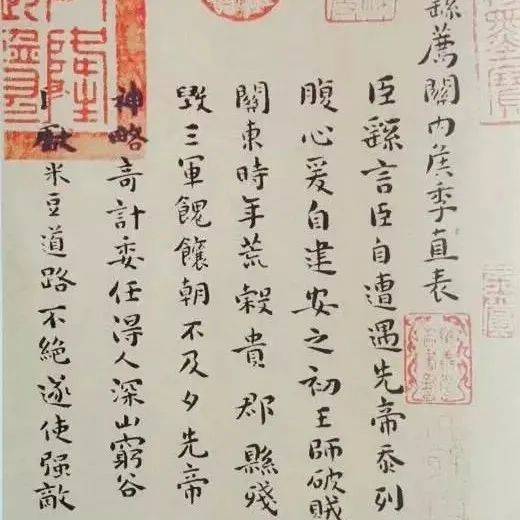 繇薦關內侯季直表
臣繇言臣自遭遇先帝忝列
腹心爰自建安之初王師破賊
關東時年荒穀貴郡縣殘
毀三軍餽饟朝不及夕先帝
神略奇計委任得人深山窮谷
獻米豆道路不絕遂使强敵